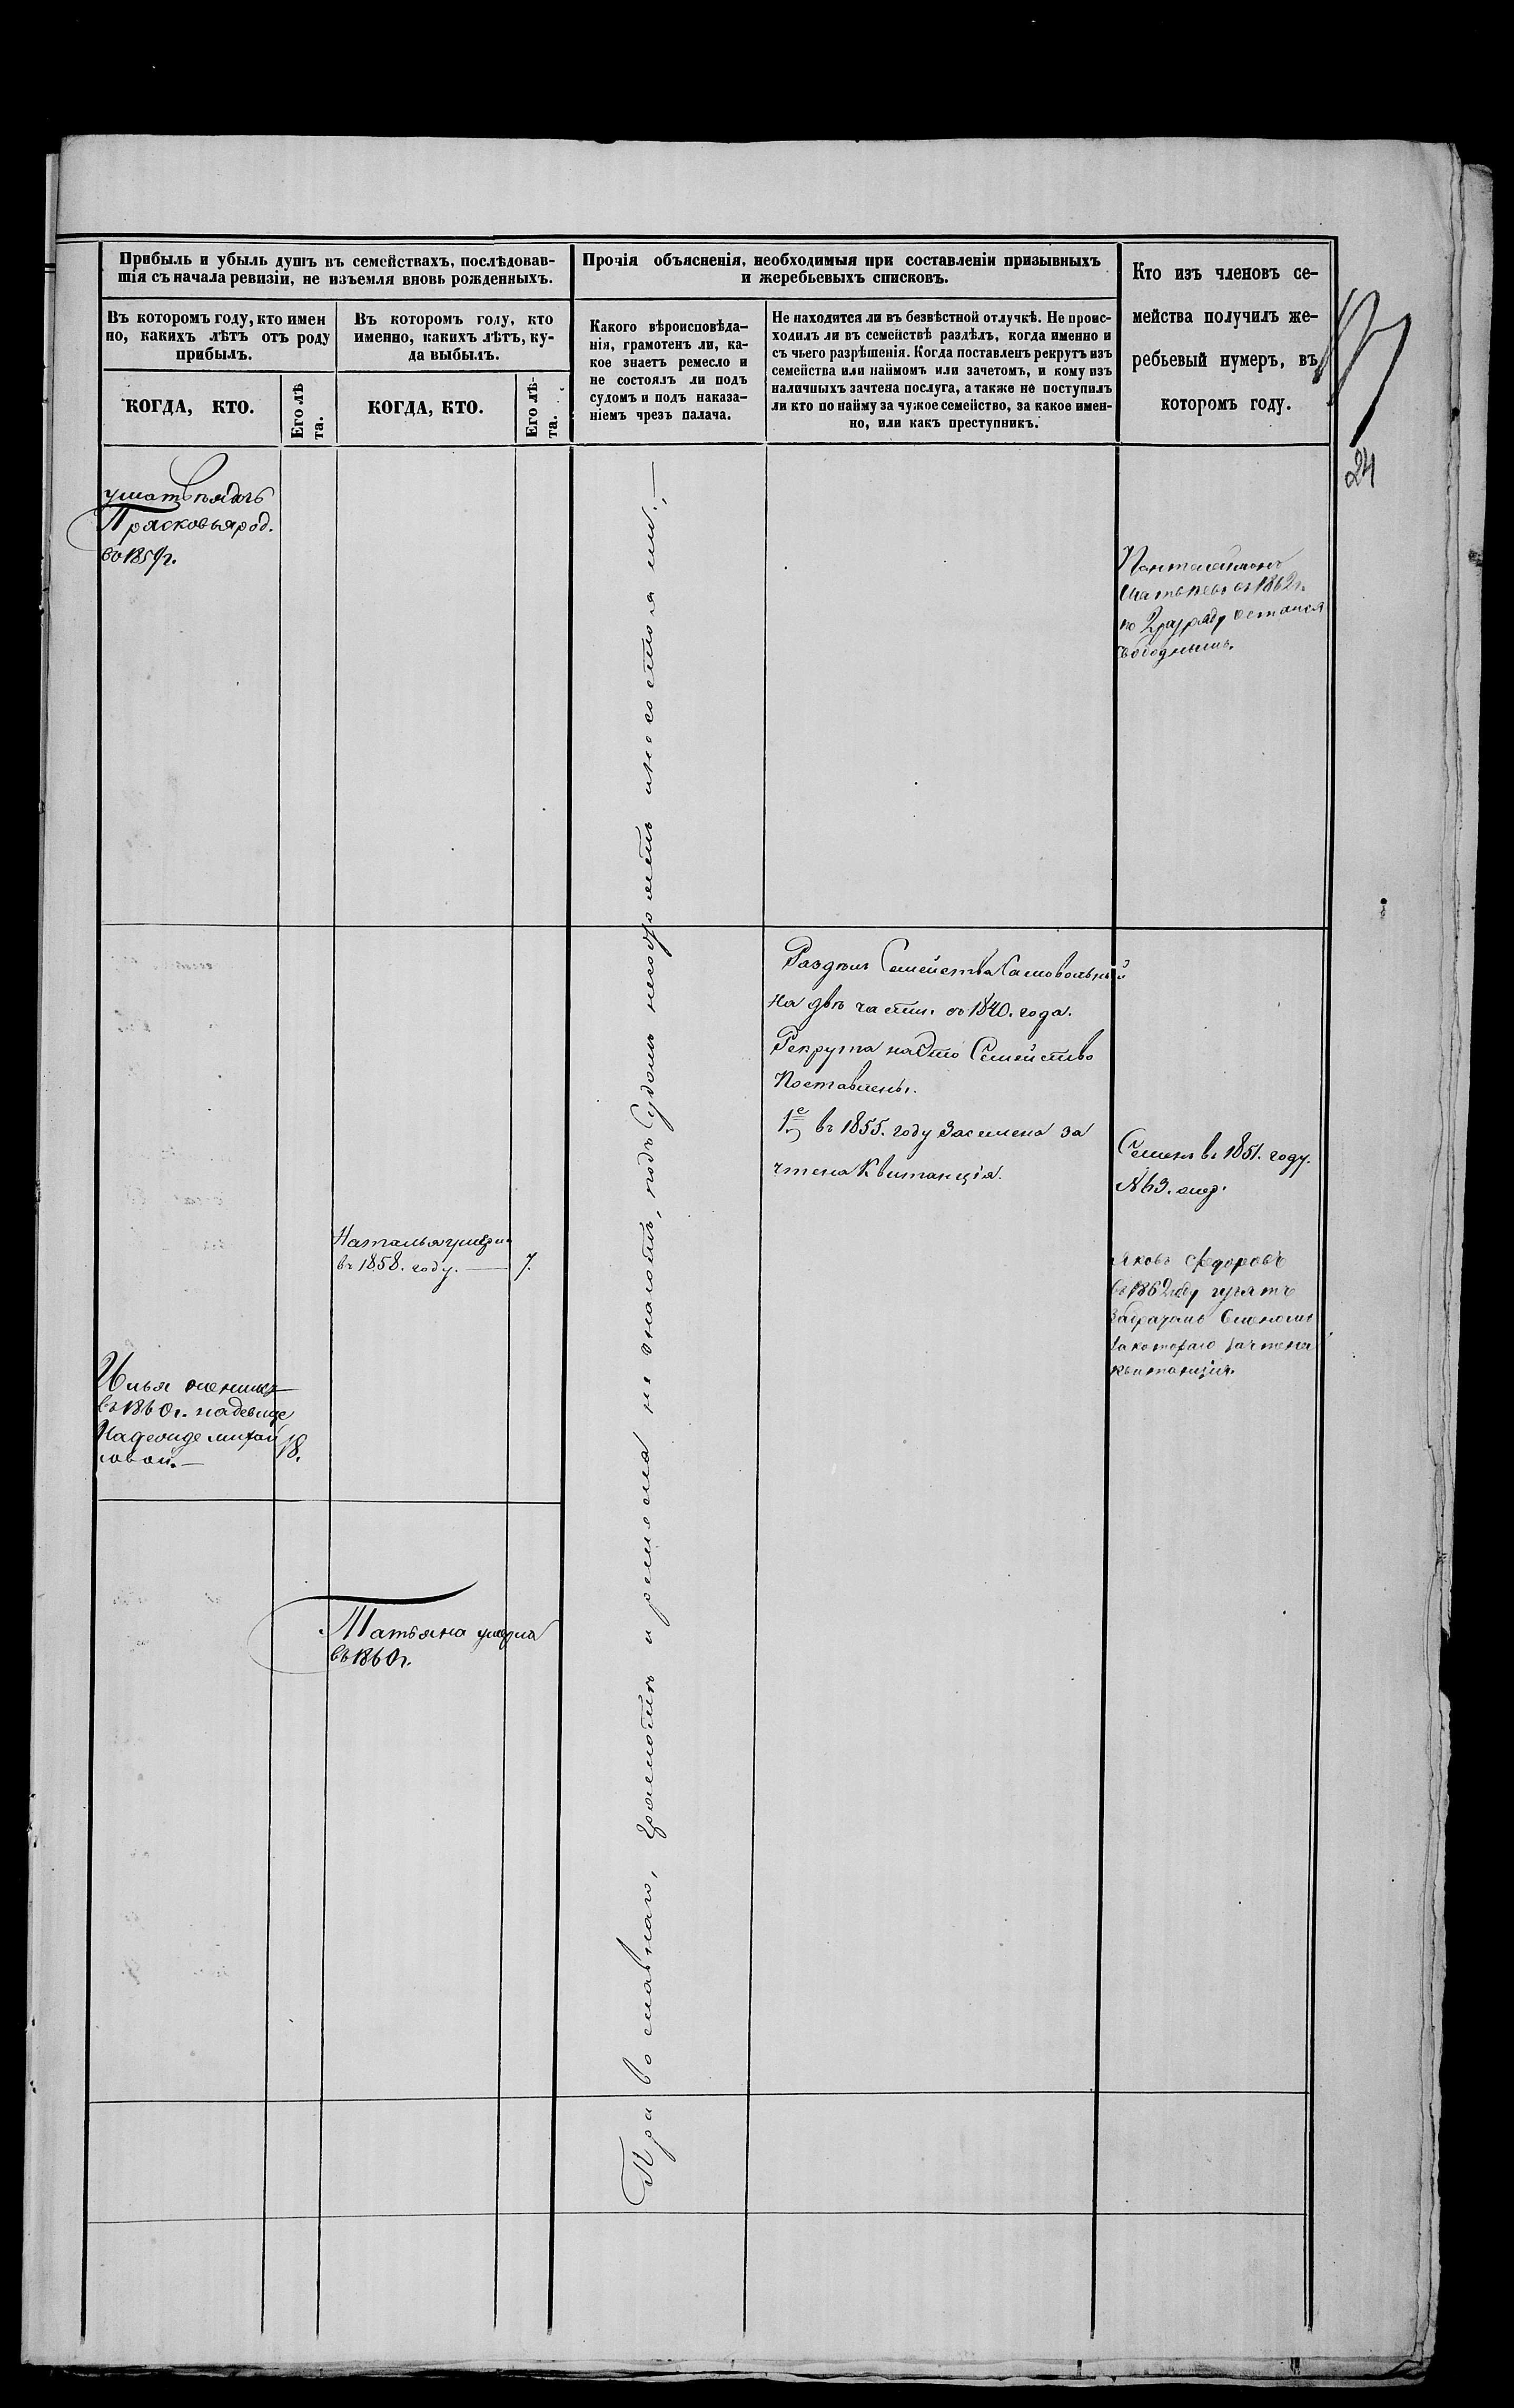 Прибыль и убыль душъ въ семействахъ, послѣдовав-
шія съ начала ревизіи, не изъемля вновь рожденныхъ.
Въ которомъ году, кто имен
но, какихъ лѣтъ отъ роду
прибылъ.
КОГДА, КТО.
Его лѣ
та.
Въ которомъ году, кто
именно, какихъ лѣтъ, ку-
да выбылъ.
КОГДА, КТО.
Его лѣ-
та.
Прочія объясненія, необходимыя при составленіи призывныхъ
и жеребьевыхъ списковъ.
Какого вѣроисповѣда-
нія, грамотенъ ли, ка-
кое знаетъ ремесло и
не состоялъ ли подъ
судомъ и подъ наказа-
ніемъ чрезъ палача.
Не находится ли въ безвѣстной отлучкѣ. Не проис-
ходилъ ли въ семействѣ раздѣлъ, когда именно и
съ чьего разрѣшенія. Когда поставленъ рекрутъ изъ
семейства или наймомъ или зачетомъ, и кому изъ
наличныхъ зачтена послуга, а также не поступилъ
ли кто по найму за чужое семейство, за какое имен-
но, или какъ преступникъ.
Кто изъ членовъ се-
мейства получилъ же-
ребьевый нумеръ, въ
которомъ году.
24
Прасковья род.
Пантелеймонъ
въ 1862 г.
по 2 разряду остался
свободнымъ.
Православнаго, грамотѣ и ремесла не знаютъ, подъ Судомъ не
и не состояли. —
Раздѣлъ Семейства Самовольный
на двѣ части. въ 1840. года.
Рекрута на Это Семейство
Поставлены.
1е въ 1855. году За семена за
чтена Квитанція.
Семенъ въ 1851. году.
№ 63.
Наталья умерла
въ 1858. году. — 7.
Яковъ Федоровъ
въ 1862 году
за братомъ Семеномъ
за котораго зачтена
квитанція.
Илья женился
въ 1860 г. на девице
Надеиде михай
ловой. — 18.
Татьяна умерла
въ 1860 г.